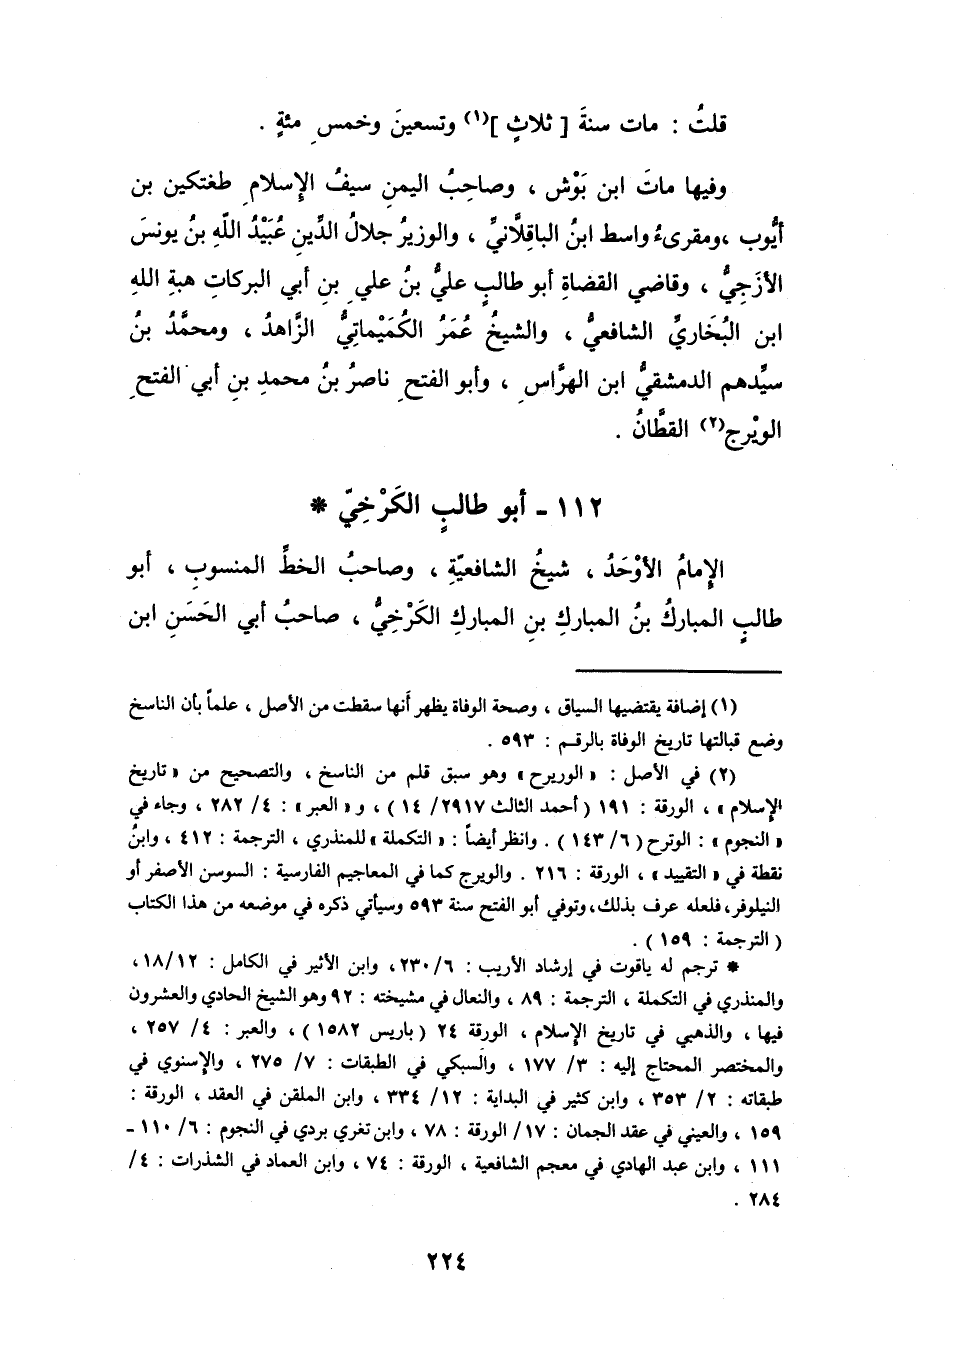 قلتُ : مات سنةَ [ ثلاثٍ ](١) وتسعينَ وخمسِ مئةٍ .
وفيها ماتَ ابن بَوْش ، وصاحِبُ اليمنِ سيفُ الإسلامِ طغتكين بن
أيُّوب ،ومقرىءُ واسط ابنُ الباقِلَّانيِّ ، والوزيرُ جلالُ الدِّينِ عُبَيْدُ اللّهِ بنُ يونسَ
الأزَجِيُّ ، وقاضي القضاةِ أبو طالبٍ عليُّ بنُ عليِ بنِ أبي البركاتِ هبةِ اللهِ
ابن البُخَاريِّ الشافعيُّ ، والشيخُ عُمَرُ الكُمَيْماتِيُّ الزَّاهدُ ، ومحمَّدُ بنُ
سيِّدهم الدمشقيُّ ابن الهرَّاسِ ، وأبو الفتحِ ناصرُ بنُ محمدِ بنِ أبي الفتحِ
الويْرج(٢) القطَّانُ .
١١٢ - أبو طالبٍ الكَرْخِيّ *
الإمامُ الأوْحَدُ ، شيخُ الشافعيّةِ ، وصاحبُ الخطِّ المنسوبِ ، أبو
طالبٍ المباركُ بنُ المباركِ بنِ المباركِ الكَرْخِيُّ ، صاحبُ أبي الحَسَنِ ابن
(١) إضافة يقتضيها السياق ، وصحة الوفاة يظهر أنها سقطت من الأصل ، علماً بأن الناسخ
وضع قبالتها تاريخ الوفاة بالرقم : ٥٩٣ .
(٢) في الأصل : « الوريرح » وهو سبق قلم من الناسخ ، والتصحيح من « تاريخ
الإسلام » ، الورقة : ١٩١ ( أحمد الثالث ٢٩١٧/ ١٤ ) ، و « العبر » : ٤/ ٢٨٢ ، وجاء في
« النجوم » : الوترح ( ٦/ ١٤٣ ) . وانظر أيضاً : « التكملة » للمنذري ، الترجمة : ٤١٢ ، وابنُ
نقطة في « التقييد » ، الورقة : ٢١٦ . والويرج كما في المعاجيم الفارسية : السوسن الأصفر أو
النيلوفر، فلعله عرف بذلك، وتوفي أبو الفتح سنة ٥٩٣ وسيأتي ذكره في موضعه من هذا الكتاب
( الترجمة : ١٥٩ ) .
* ترجم له ياقوت في إرشاد الأريب : ٢٣٠/٦، وابن الأثير في الكامل : ١٨/١٢،
والمنذري في التكملة ، الترجمة : ٨٩ ، والنعال في مشيخته : ٩٢ وهو الشيخ الحادي والعشرون
فيها ، والذهبي في تاريخ الإسلام ، الورقة ٢٤ ( باريس ١٥٨٢ ) ، والعبر : ٤/ ٢٥٧ ،
والمختصر المحتاج إليه : ٣/ ١٧٧ ، والسبكي في الطبقات : ٧/ ٢٧٥ ، والإسنوي في
طبقاته : ٢/ ٣٥٣ ، وابن كثير في البداية : ١٢/ ٣٣٤ ، وابن الملقن في العقد ، الورقة :
١٥٩ ، والعيني في عقد الجمان : ١٧/ الورقة : ٧٨ ، وابن تغري بردي في النجوم : ٦/ ١١٠ -
١١١ ، وابن عبد الهادي في معجم الشافعية ، الورقة : ٧٤ ، وابن العماد في الشذرات : ٤/
٢٨٤ .
٢٢٤